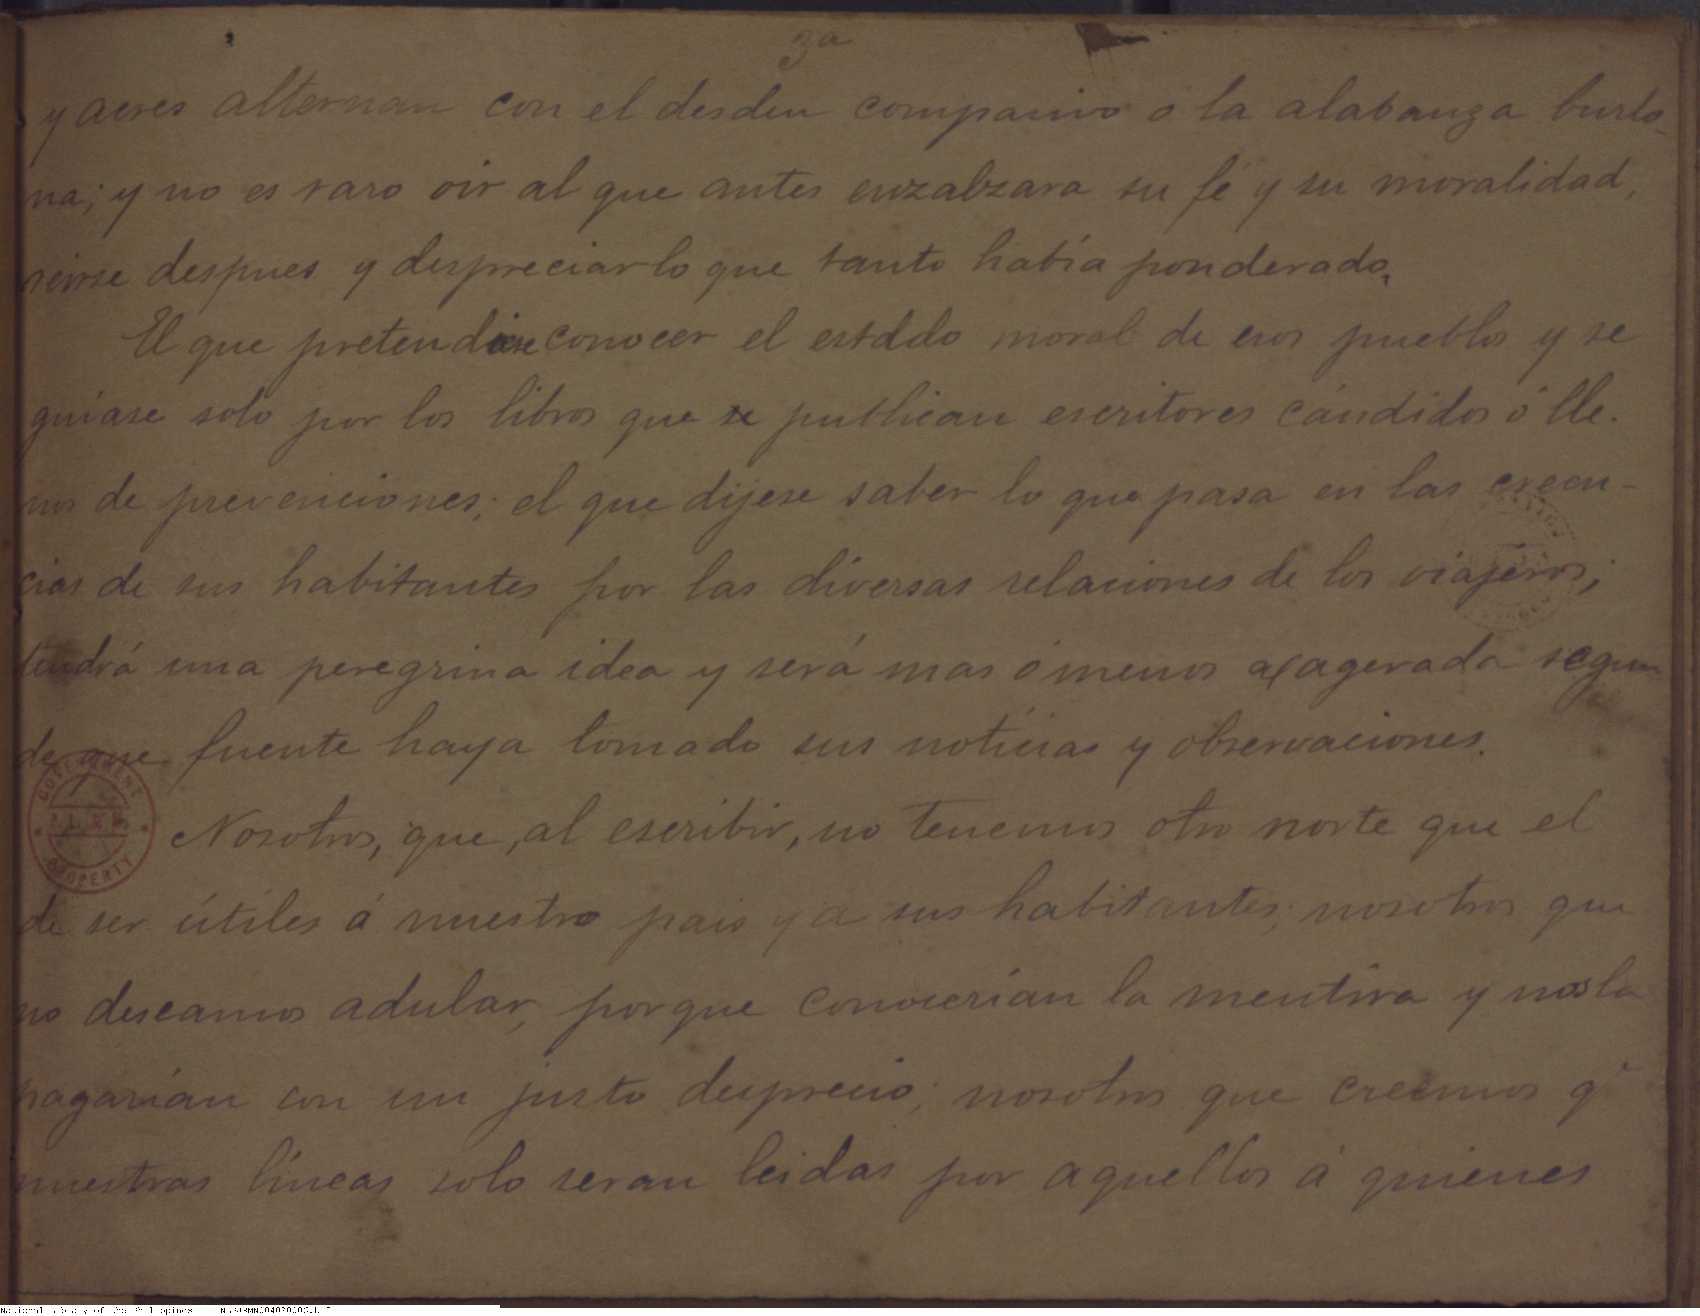 3a
y acres alternan con el desden compasivo ó la alabanza burlo-
na; y no es raro oir al que antes enzalzara su fé y su moralidad,
reirse despues y despreciar lo que tanto había ponderado.
El que pretendiese conocer el estado moral de esos pueblos y se
guiase solo por los libros que se publican escritores cándidos ó lle-
nos de prevenciones; el que dijese saber lo que pasa en las creen-
cias de sus habitantes por las diversas relaciones de los viajeros;
tendrá una peregrina idea y será mas ó menos exagerada segun
de que fuente haya tomado sus noticias y observaciones.
Nosotros, que, al escribir, no tenemos otro norte que el
de ser útiles á nuestro pais y a sus habitantes; nosotros que
no deseamos adular, porque conocerían la mentira y nos la
pagarían con un justo desprecio; nosotros que creemos q.
nuestras líneas solo seran leidas por aquellos á quienes
GOVERNMENT
PROPERTY
National Library of the Philippines